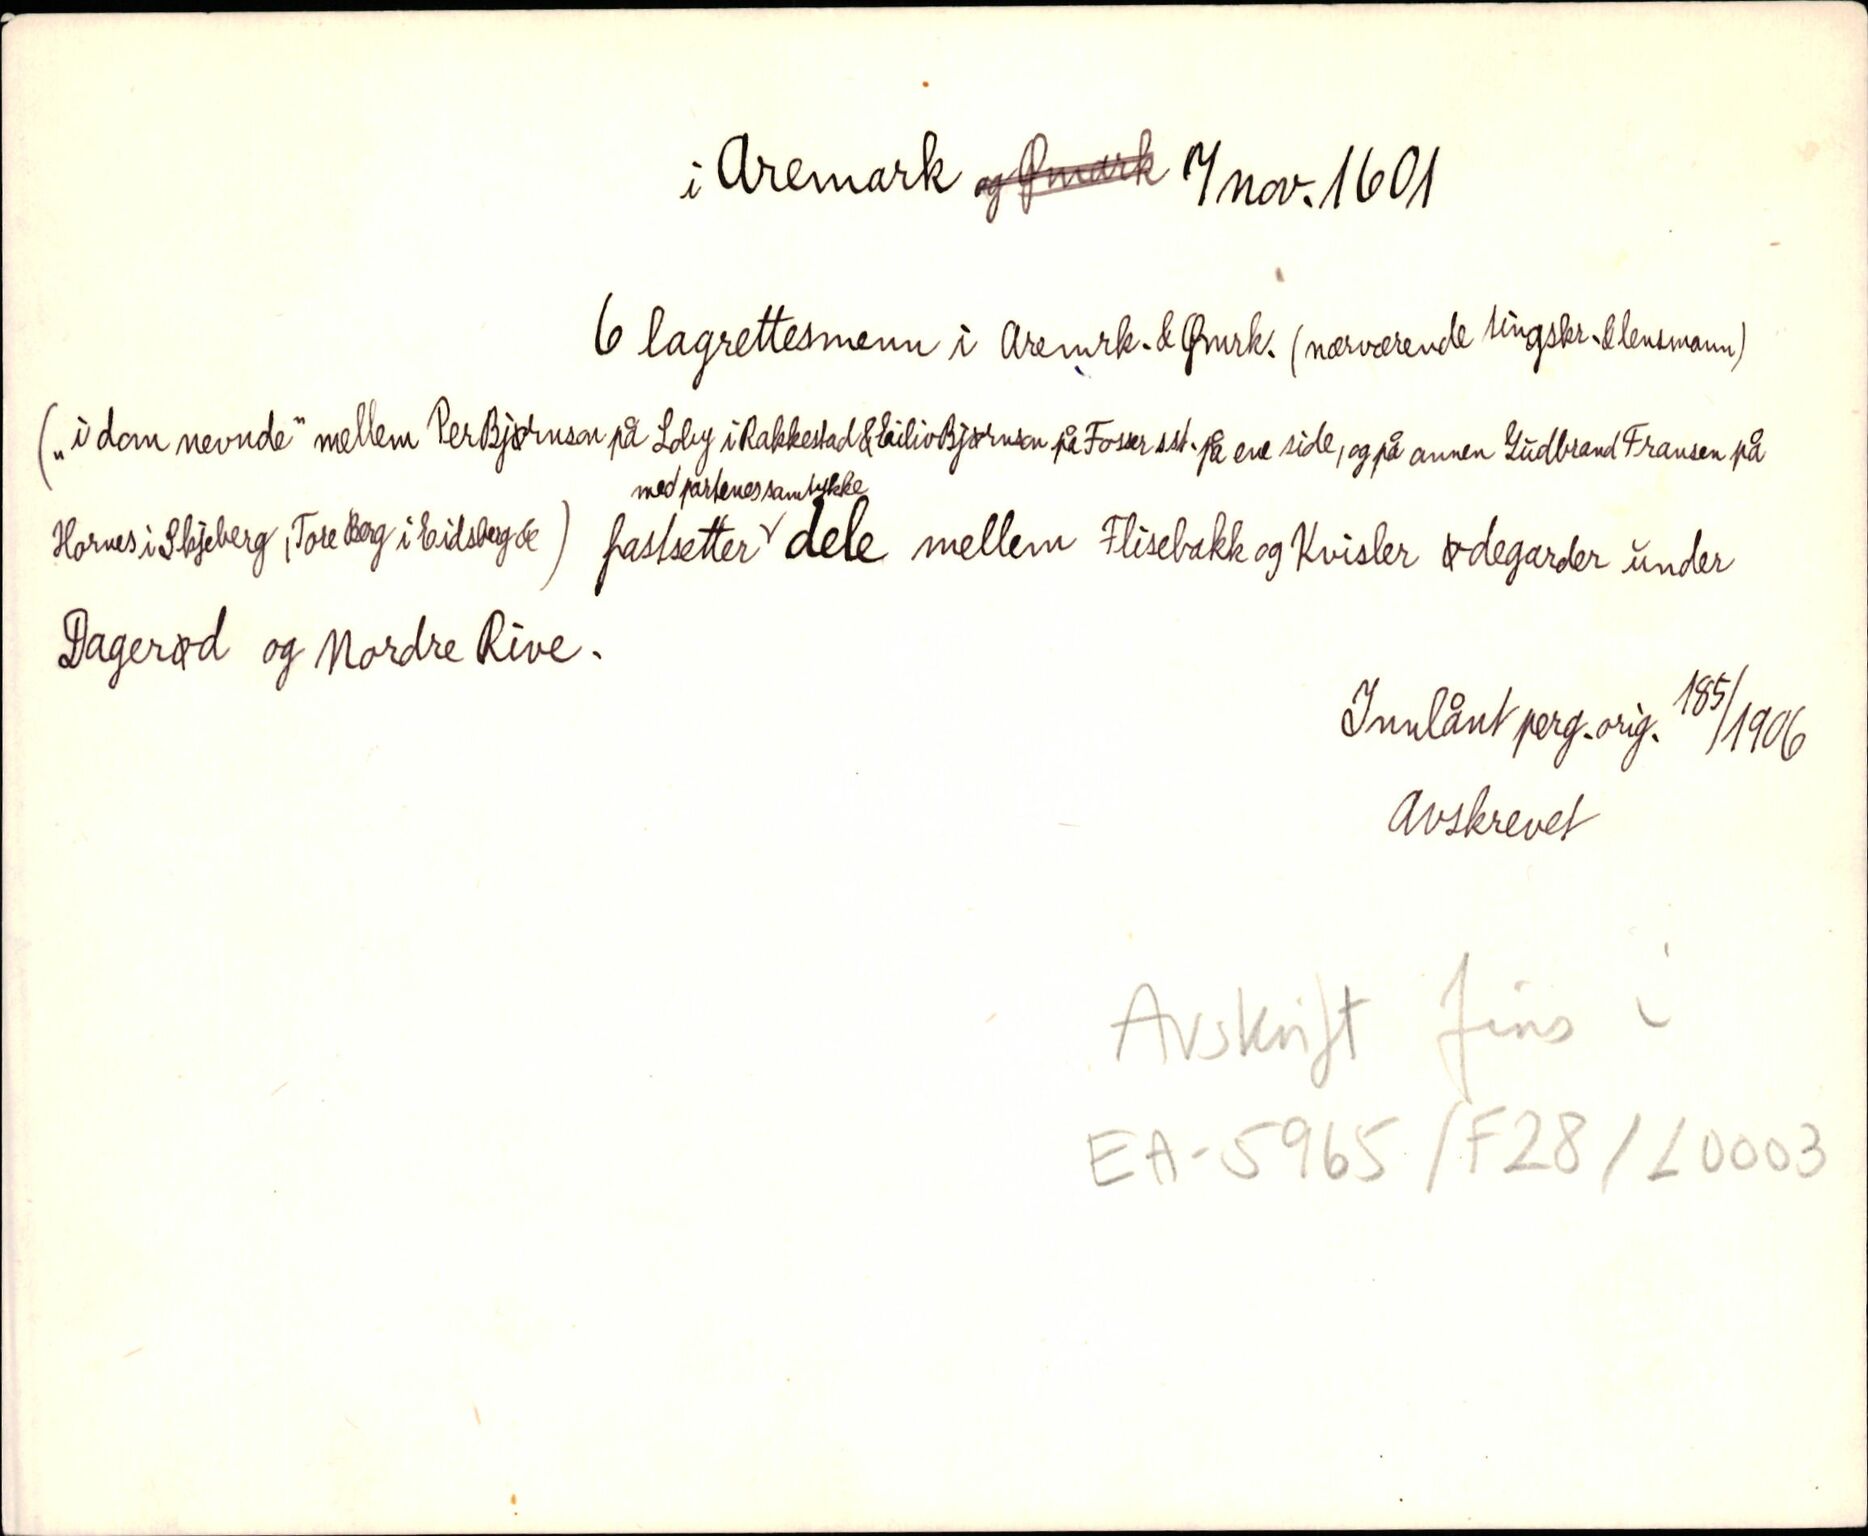 i Aremark og Ømark 7 nov. 1601
6 lagrettesmenn i Aremrk. & Ømrk. (nærværende tingskr. & lensmann)
("i dom nevnde" mellem Per Bjørnson på Loby i Rakkestad & Eiliv Bjørnson på Fosser sst. på ene side, og på annen Gudbrand Fransen på
med partenes samtykke
Hornes i Skjeberg, Tore Berg i Eidsberg &c) fastsetter v dele mellem Flisebakk og Kvisler ødegarder under
Dagerød og Nordre Rive.
Innlånt perg. orig. 185/1906
Avskrevet
Avskrift fins i
EA-5965/F28/L0003